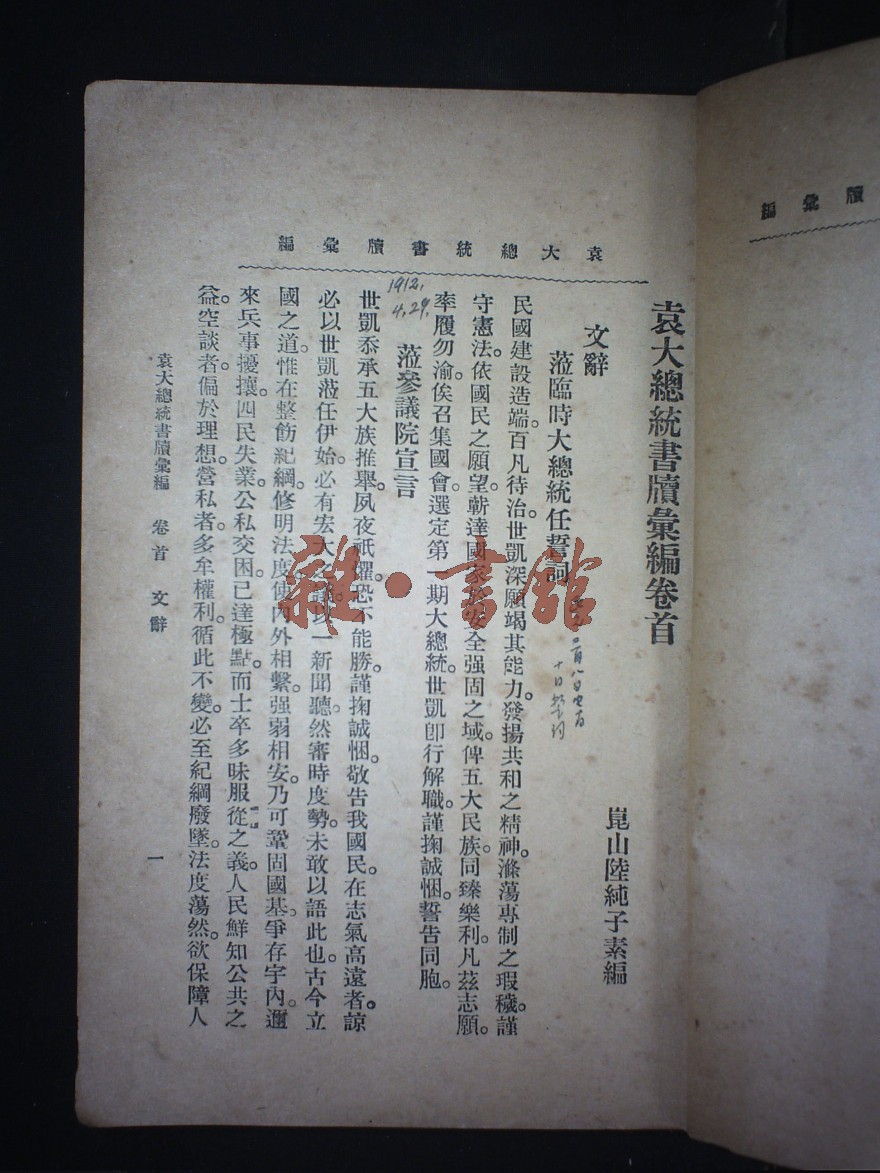 袁大總統書牘彙編
袁大總統書牘彙編卷首
崑山陸純子素編
文辭
蒞臨時大總統任誓詞
二月八日
十日
民國建設造端。百凡待治。世凱深願竭其能力。發揚共和之精神。滌蕩專制之瑕穢。謹
守憲法。依國民之願望。蘄達國家於安全强固之域。俾五大民族。同臻樂利。凡茲志願。
率履勿渝。俟召集國會。選定第一期大總統。世凱卽行解職。謹掬誠悃。誓告同胞。
1912.
4.29.
蒞參議院宣言
世凱忝承五大族推舉。夙夜祇懼。恐不能勝。謹掬誠悃。敬告我國民。在志氣高遠者。諒
必以世凱蒞任伊始。必有宏大之議。以一新聞聽。然審時度勢。未敢以語此也。古今立
國之道。惟在整飭紀綱。修明法度。使內外相繫。强弱相安。乃可鞏固國基。爭存宇內。邇
來兵事擾攘。四民失業。公私交困。已達極點。而士卒多昧服從之義。人民鮮知公共之
益。空談者。偏於理想。營私者。多牟權利。循此不變。必至紀綱廢墜。法度蕩然。欲保障人
袁大總統書牘彙編 卷首 文辭 一
牘彙編
雜·書館